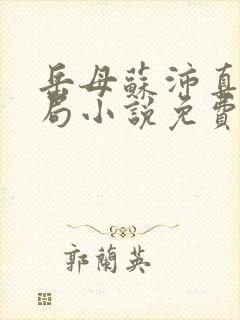 岳母蘇沛真
局小說免費
郭蘭英